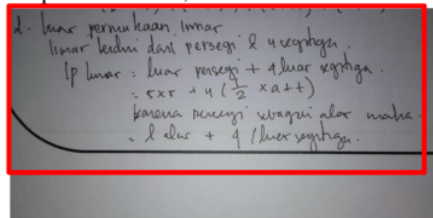 d. luas permukaan limas
limas terdiri dari persegi & 4 segitiga.
lp limas = luas persegi + 4 luas segitiga.
= s x s + 4 (1/2 x a x t)
karena persegi sebagai alas maka
= l alas + 4 (luas segitiga.